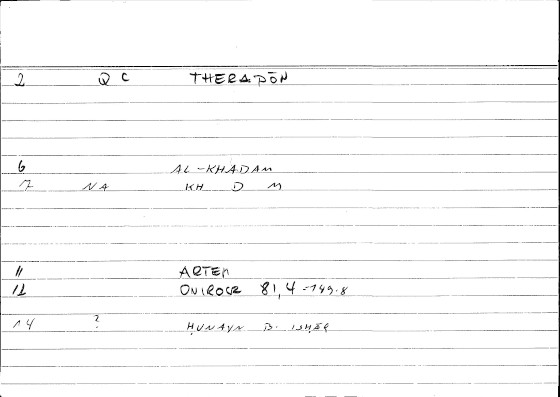 2 QC THERAPŌN
6 AL-KHADAM
7 NA KH D M
11 ARTEM
12 ONIROCR 81,4 = 149.8
14 ? ḤUNAYN B. ISḤĀQ